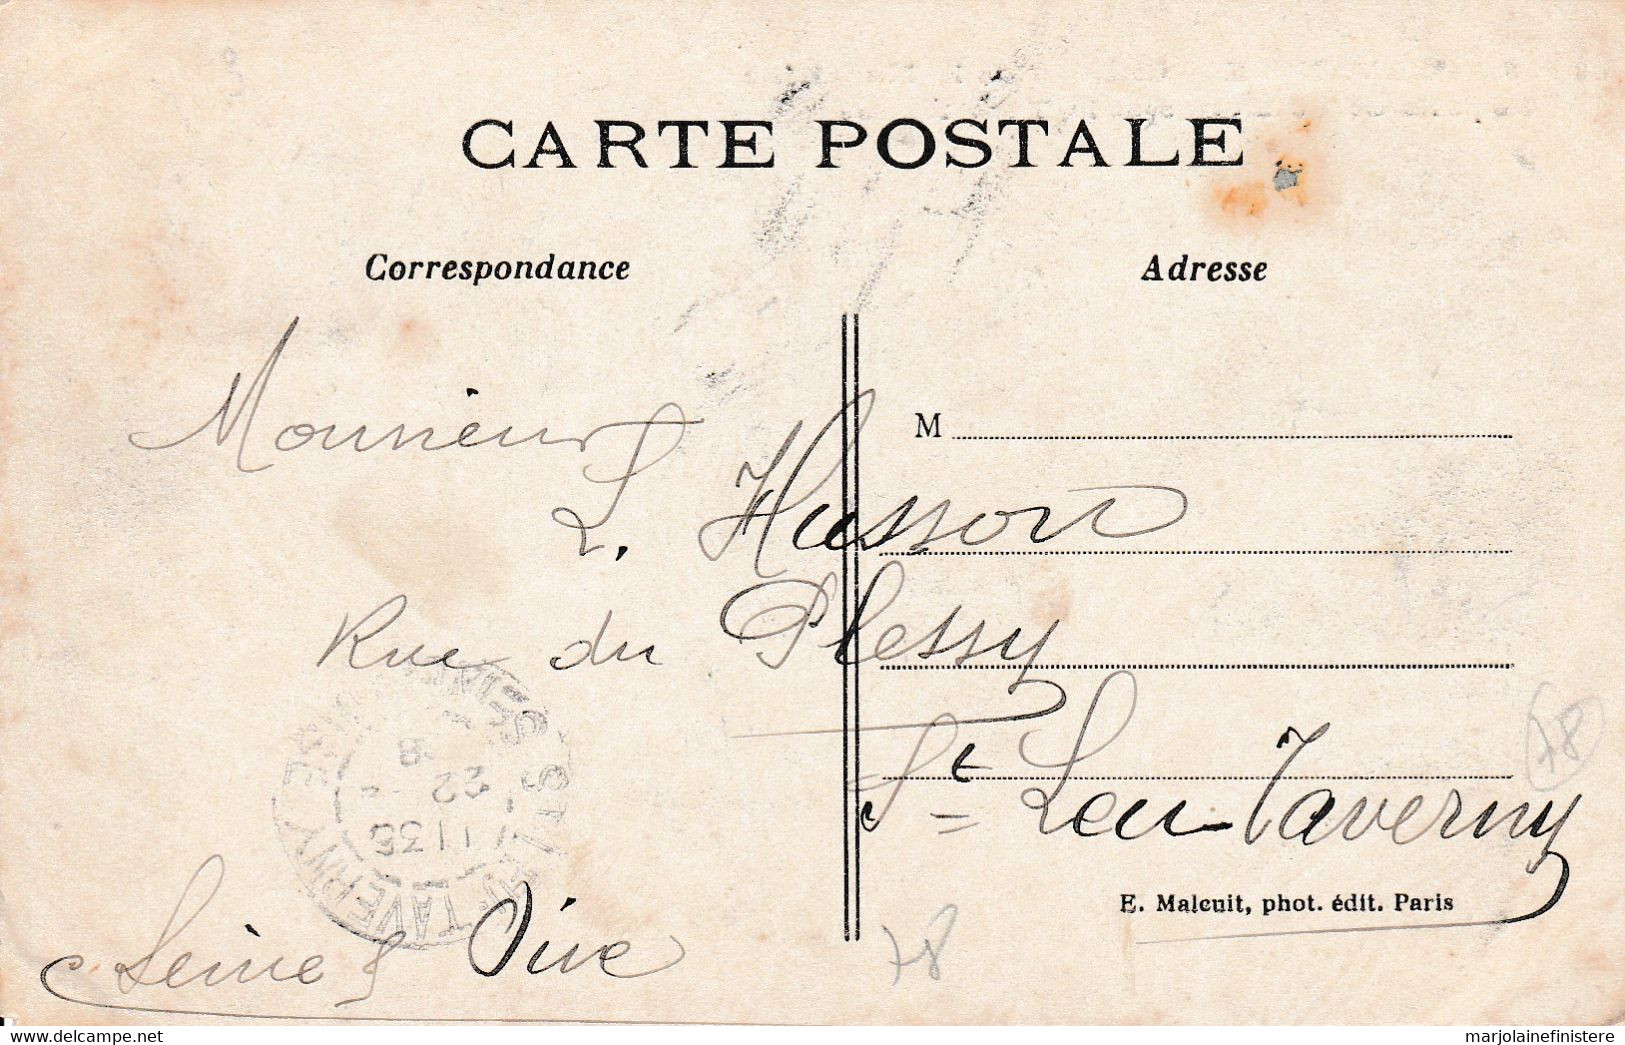 CARTE POSTALE
Correspondance
Adresse
M
Monsieur
L. Husson
Rue du Plessy
St Leu-Taverny
Seine & Oise
ST LEU TAVERNY
SEINE-ET-OISE
1135
22 - 8
E. Malcuit, phot. édit. Paris
78
78
www.delcampe.net
marjolainefinistere